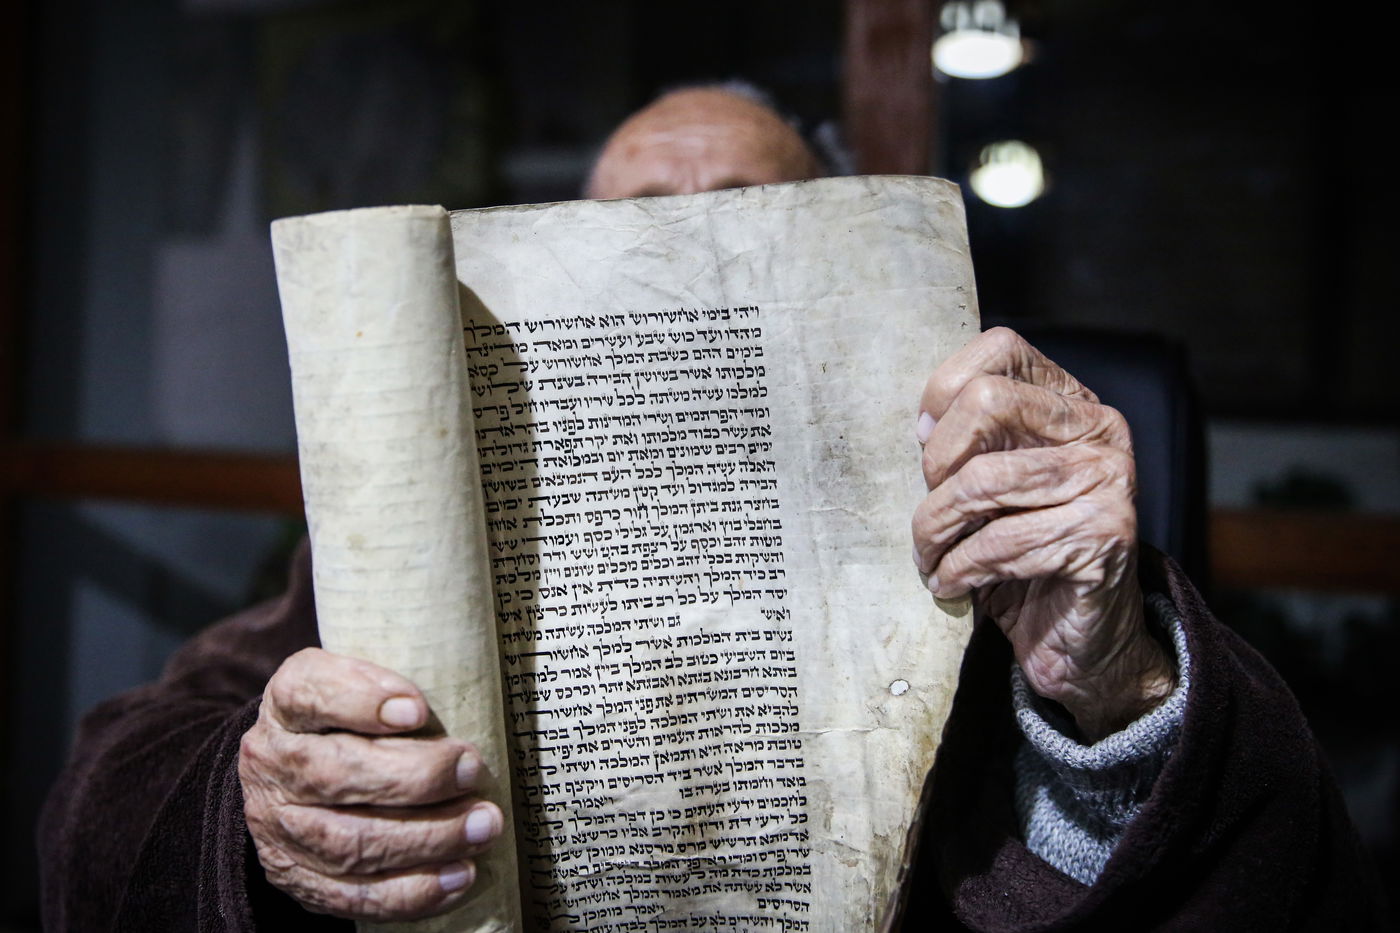 ויהי בימי אחשורוש הוא אחשורוש המלך
מהדו ועד כוש שבע ועשרים ומאה מדינה
בימים ההם כשבת המלך אחשורוש על כסא
מלכותו אשר בשושן הבירה בשנת שלוש
למלכו עשה משתה לכל שריו ועבדיו חיל פרס
ומדי הפרתמים ושרי המדינות לפניו בהראתו
את עשר כבוד מלכותו ואת יקר תפארת גדולתו
ימים רבים שמונים ומאת יום ובמלואת הימים
האלה עשה המלך לכל העם הנמצאים בשושן
הבירה למגדול ועד קטן משתה שבעת ימים
בחצר גנת ביתן המלך חור כרפס ותכלת אחוז
בחבלי בוץ וארגמן על גלילי כסף ועמודי שש
מטות זהב וכסף על רצפת בהט ושש ודר וסחרת
והשקות בכלי זהב וכלים מכלים שונים ויין מלכות
רב כיד המלך והשתיה כדת אין אנס כי כן
יסד המלך על כל רב ביתו לעשות כרצון איש
ואיש גם ושתי המלכה עשתה משתה
נשים בית המלכות אשר למלך אחשורוש
ביום השביעי כטוב לב המלך ביין אמר למהומן
בזתא חרבונא בגתא ואבגתא זתר וכרכס שבעת
הסריסים המשרתים את פני המלך אחשורוש
להביא את ושתי המלכה לפני המלך בכתר
מלכות להראות העמים והשרים את יפיה כי
טובת מראה היא ותמאן המלכה ושתי לבוא
בדבר המלך אשר ביד הסריסים ויקצף המלך
מאד וחמתו בערה בו ויאמר המלך
לחכמים ידעי העתים כי כן דבר המלך
כל ידעי דת ודין והקרב אליו כרשנא שתר
אדמתא תרשיש מרס מרסנא ממוכן שבעת
שרי פרס ומדי ראי פני המלך הישבים ראשנה
במלכות כדת מה לעשות במלכה ושתי על
אשר לא עשתה את מאמר המלך אחשורוש ביד
הסריסים ויאמר מומכן
המלך והשרים לא על המלך לבדו עותה